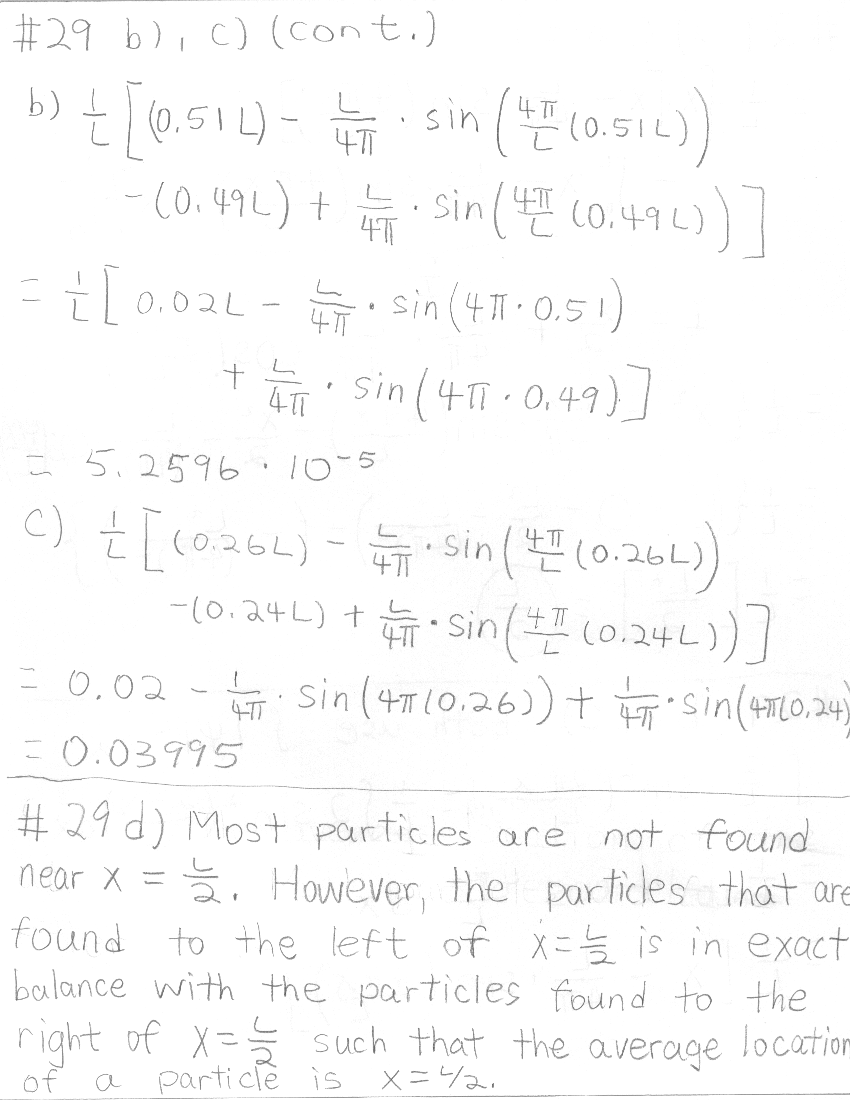 #29 b), c) (cont.)
b) 1/L [(0.51L) - L/4π · sin(4π/L (0.51L))
-(0.49L) + L/4π · sin(4π/L (0.49L))]
= 1/L [0.02L - L/4π · sin(4π · 0.51)
+ L/4π · sin(4π · 0.49)]
= 5.2596 · 10⁻⁵
c) 1/L [(0.26L) - L/4π · sin(4π/L (0.26L))
-(0.24L) + L/4π · sin(4π/L (0.24L))]
= 0.02 - 1/4π · sin(4π(0.26)) + 1/4π · sin(4π(0.24)
= 0.03995
# 29 d) Most particles are not found
near x = L/2. However, the particles that are
found to the left of x = L/2 is in exact
balance with the particles found to the
right of x = L/2 such that the average location
of a particle is x = L/2.